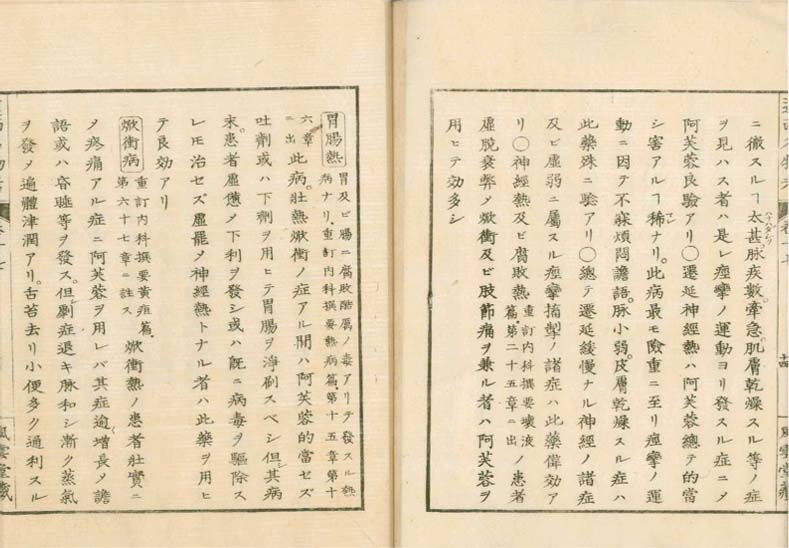 ニ徹スルヿ太甚脉疾數牽急肌膚乾燥スル等ノ症
ヲ見ハス者ハ是レ痙攣ノ運動ヨリ發スル症ニメ
阿芙蓉良驗アリ〇遷延神經熱ハ阿芙蓉總テ的當
シ害アルヿ稀ナリ此病最モ險重ニ至リ痙攣ノ運
動ニ因テ不寐煩悶譫語脉小弱皮膚乾燥スル症ハ
此藥殊ニ驗アリ〇總テ遷延緩慢ナル神經ノ諸症
及ビ虛弱ニ屬スル痙攣搐掣ノ諸症ハ此藥偉効ア
リ〇神經熱及ビ腐敗熱重訂内科撰要壞液篇第二十五章ニ出ノ患者
虛脫衰弊メ焮衝及ビ肢節痛ヲ兼ル者ハ阿芙蓉ヲ
用ヒテ効多シ
十四
風雲堂藏
胃腸熱胃及ビ腸ニ腐敗酷厲ノ毒アリテ發スル熱病ナリ重訂内科撰要熱病篇第十五章第十
六章ニ出此病壯熱焮衝ノ症アル間ハ阿芙蓉的當セズ
吐劑或ハ下劑ヲ用ヒテ胃腸ヲ淨刷スベシ但シ其病
末患者虛憊メ下利ヲ發シ或ハ既ニ病毒ヲ驅除ス
レモ治セズ虛罷メ神經熱トナル者ハ此藥ヲ用ヒ
テ良効アリ
焮衝病重訂内科撰要黄疸篇第六十七章ニ註ス焮衝熱ノ患者壯實ニ
メ疼痛アル症ニ阿芙蓉ヲ用レバ其症逾増長メ譫
語或ハ昏睡等ヲ發ス但シ劇症退キ脉和シ漸ク蒸氣
ヲ發メ遍體津潤アリ舌苔去リ小便多ク通利スル
風雲堂藏